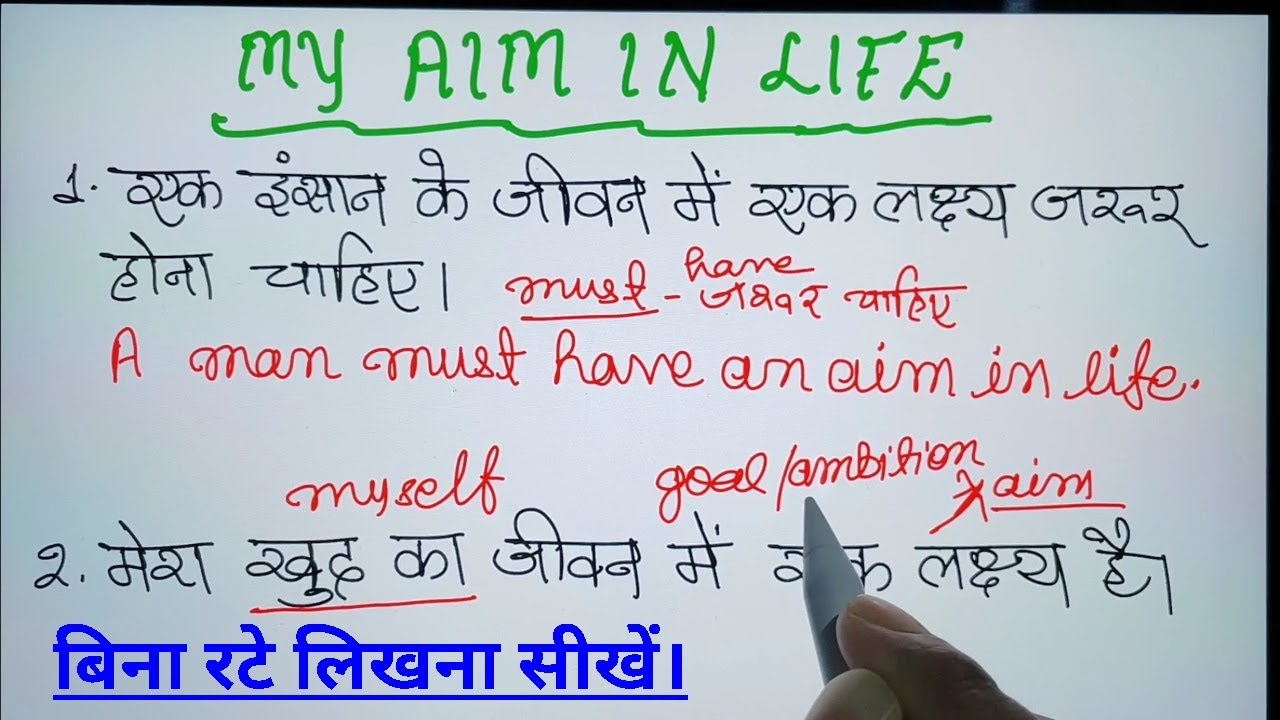 MY AIM IN LIFE
1. एक इंसान के जीवन में एक लक्ष्य जरूर
होना चाहिए। must - have जरूर चाहिए
A man must have an aim in life.
myself goal/ambition aim
२. मेरा खुद का जीवन में एक लक्ष्य है।
बिना रटे लिखना सीखें।